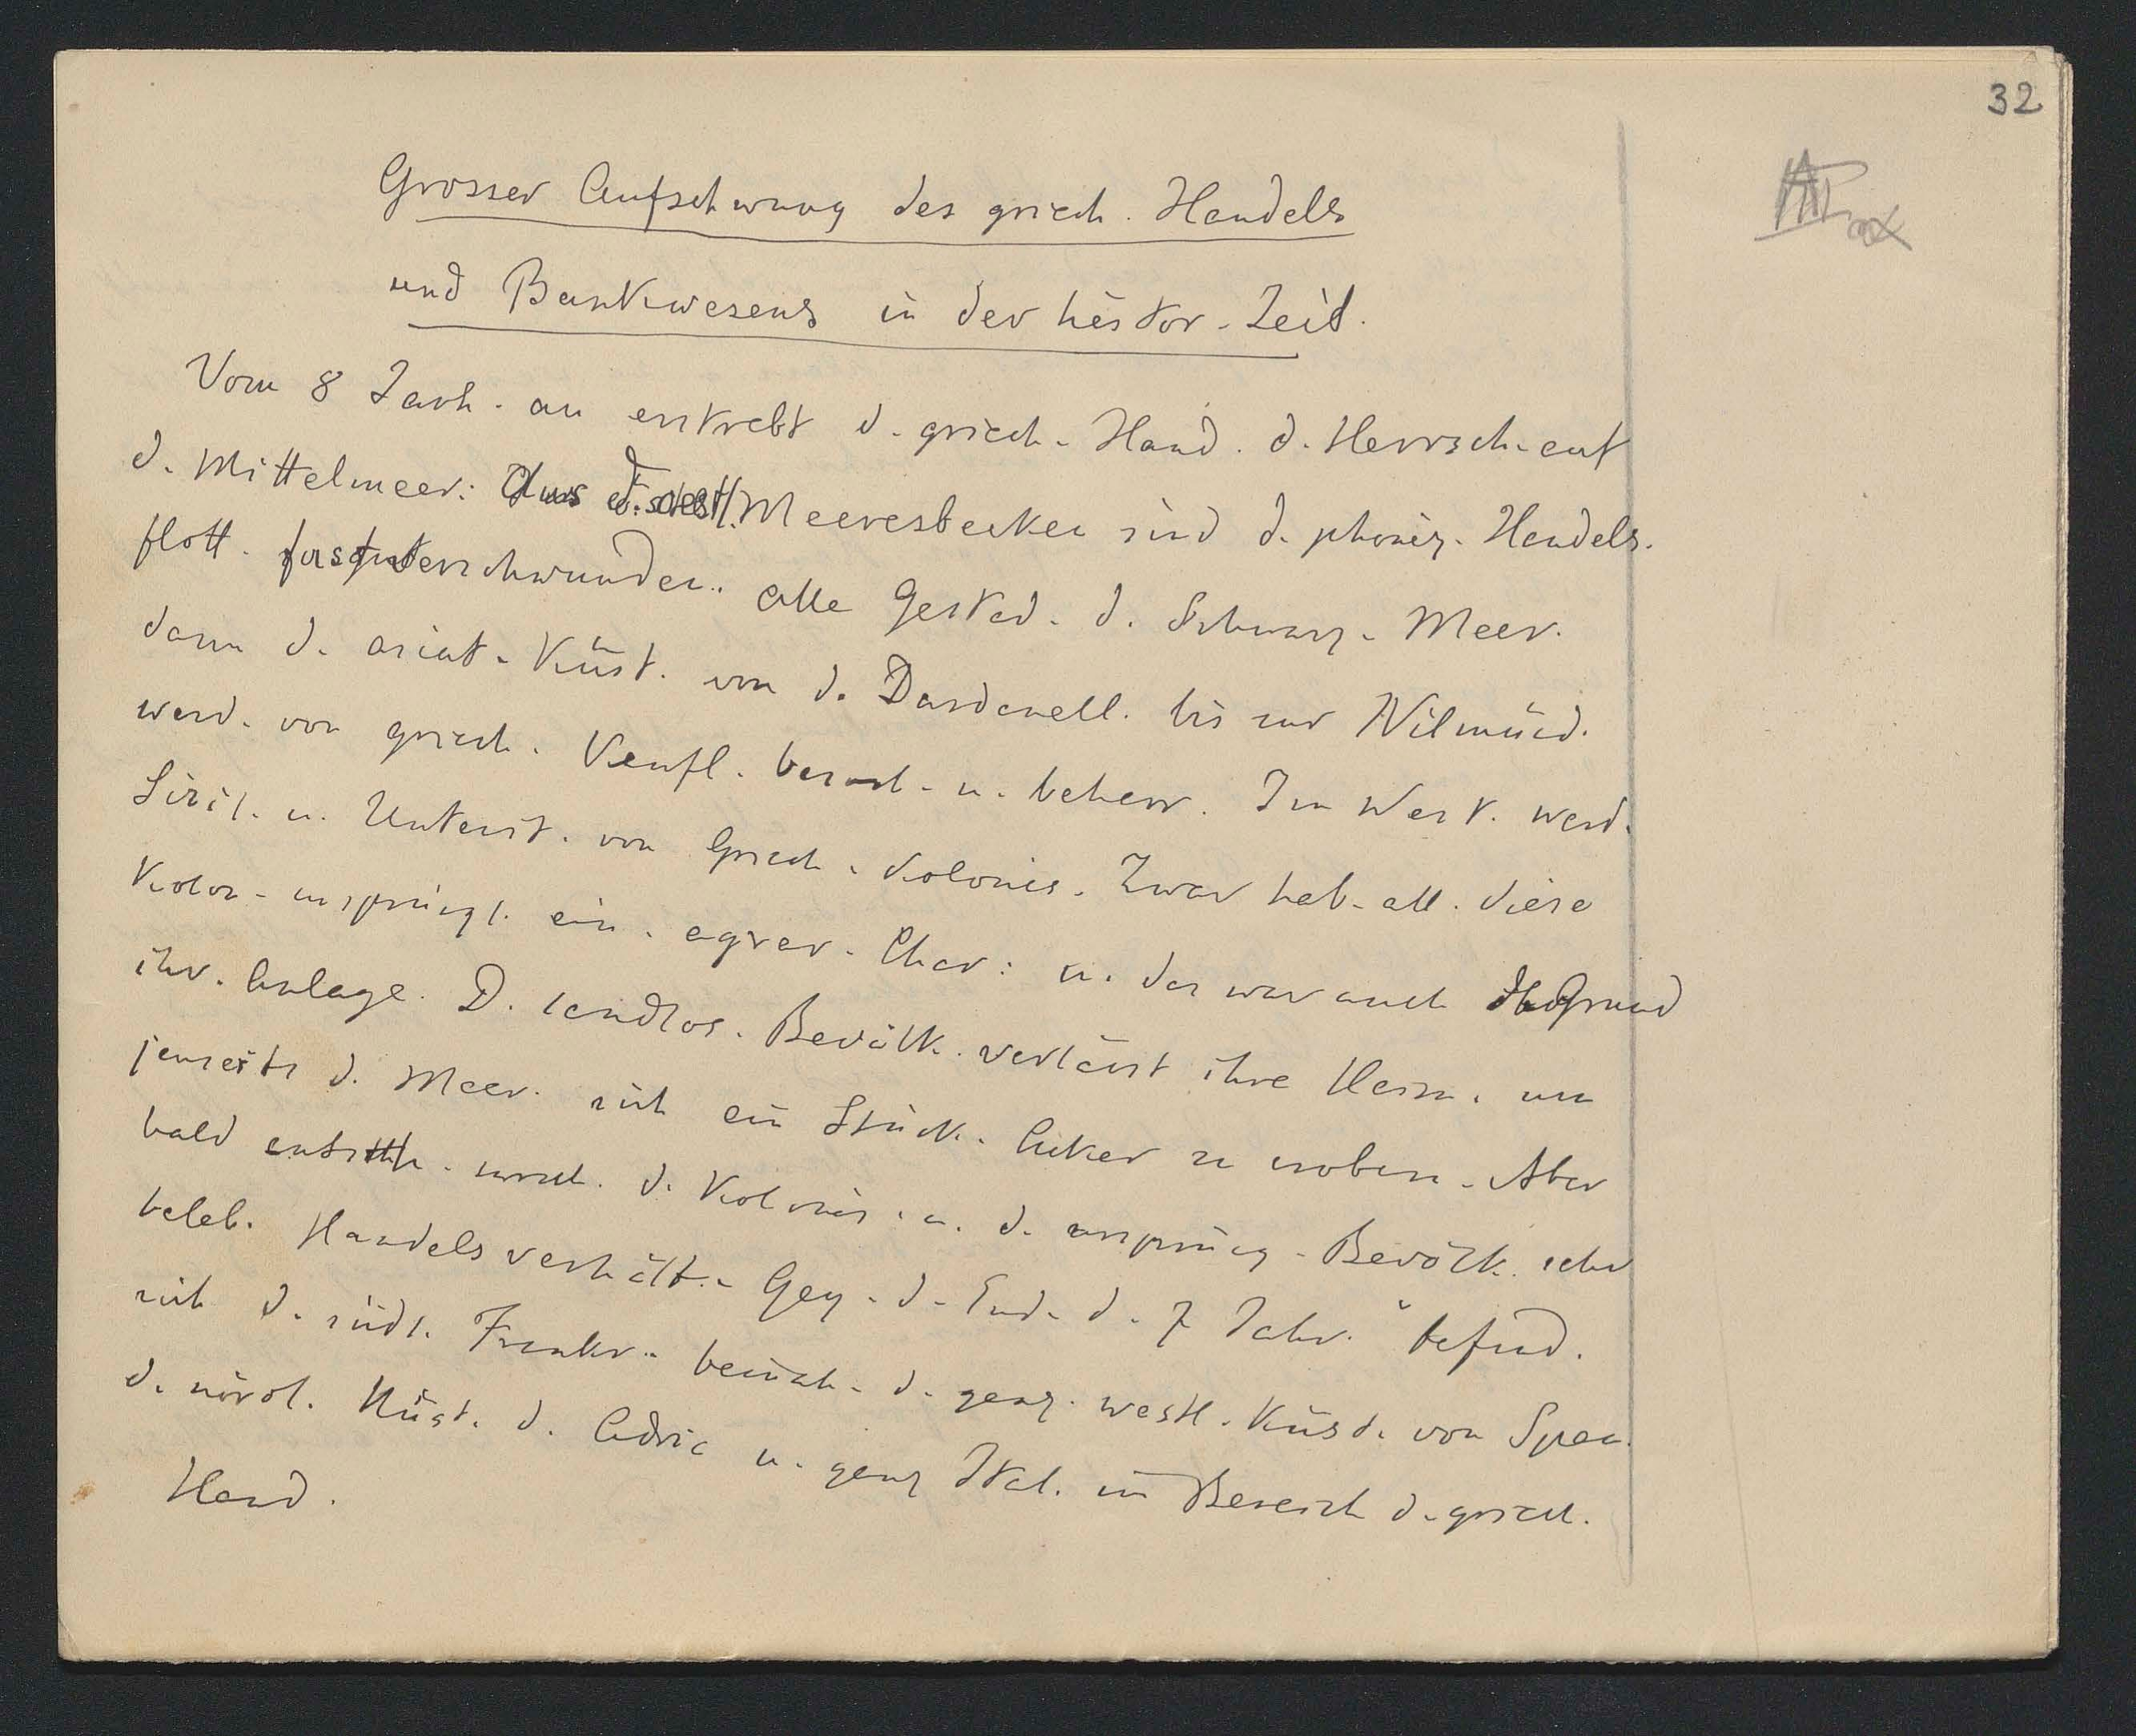 32
Grosser Aufschwung des griech. Handels
und Bankwesens in der histor. Zeit.
Vom 8 Jarh. an erstrebt d. griech. Hand. d. Herrsch. auf
d. Mittelmeer: Aus d. Meeresbecken sind d. phöniz. Handels-
flott. fast verschwunden. Alle Gestad. d. Schwarz. Meer.
dann d. asiat. Küst. von d. Dardanell. bis zur Nilmünd.
werd. von griech. Kaufl. besuch. u. beherr. Im West. werd.
Sizil. u. Unterit. von Griech. kolonis. Zwar hab. all. diese
Kolon. ursprüngl. ein. agrar. Char: u. das war auch der Grund
ihr. Anlage. D. landlos. Bevölk. verlässt ihre Heim. um
jenseits d. Meer. sich ein Stück. Acker zu erobern. Aber
bald entsteh. zwisch. d. Kolonis. u. d. ursprüng. Bevölk. sehr
beleb. Handelsverhält. Geg. d. End. d. 7 Jahr. befind.
sich d. südl. Frankr. beinah. d. ganz. westl. Küst. von Span.
d. nördl. Küst. d. Adria u. ganz Ital. im Bereich d. griech.
Hand.